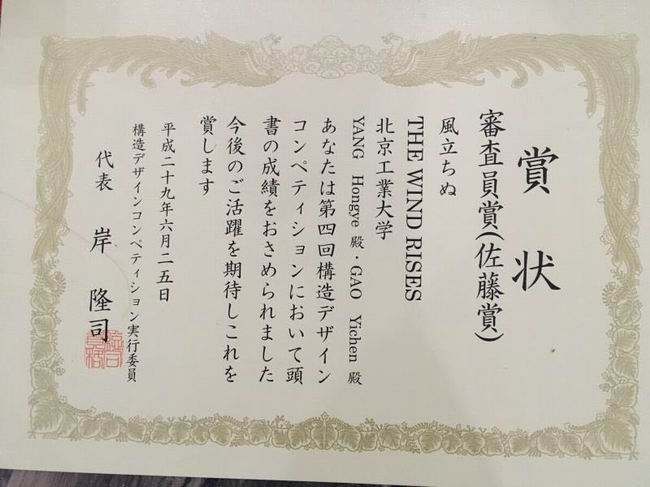 賞状
審査員賞(佐藤賞)
風立ちぬ
THE WIND RISES
北京工業大学
YANG Hongye 殿・GAO Yichen 殿
あなたは第四回構造デザイン
コンペティションにおいて頭
書の成績をおさめられました
今後のご活躍を期待しこれを
賞します
平成二十九年六月二五日
構造デザインコンペティション実行委員
代表 岸 隆司